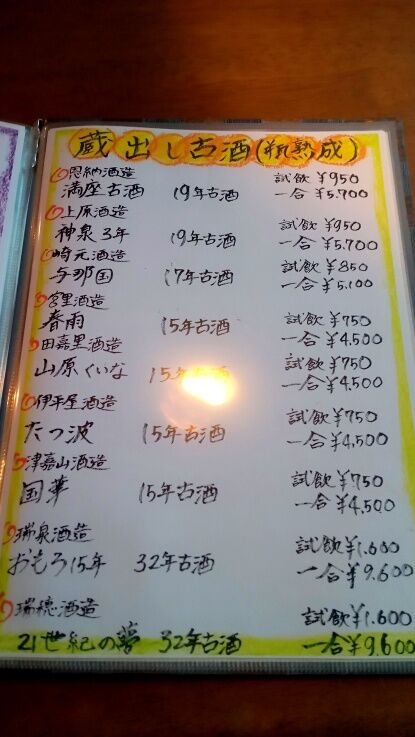 蔵出し古酒(瓶熟成)
恩納酒造 試飲 ¥950
満座古酒 19年古酒 一合 ¥5.700
上原酒造 試飲 ¥950
神泉3年 19年古酒 一合 ¥5.700
崎元酒造 試飲 ¥850
与那国 17年古酒 一合 ¥5.100
宮里酒造 試飲 ¥750
春雨 15年古酒 一合 ¥4.500
田嘉里酒造 試飲 ¥750
山原くいな 15年古酒 一合 ¥4.500
伊平屋酒造 試飲 ¥750
たつ波 15年古酒 一合 ¥4.500
津嘉山酒造 試飲 ¥750
国華 15年古酒 一合 ¥4.500
瑞泉酒造 試飲 ¥1.600
おもろ15年 32年古酒 一合 ¥9.600
瑞穂酒造 試飲 ¥1.600
21世紀の夢 32年古酒 一合 ¥9.600